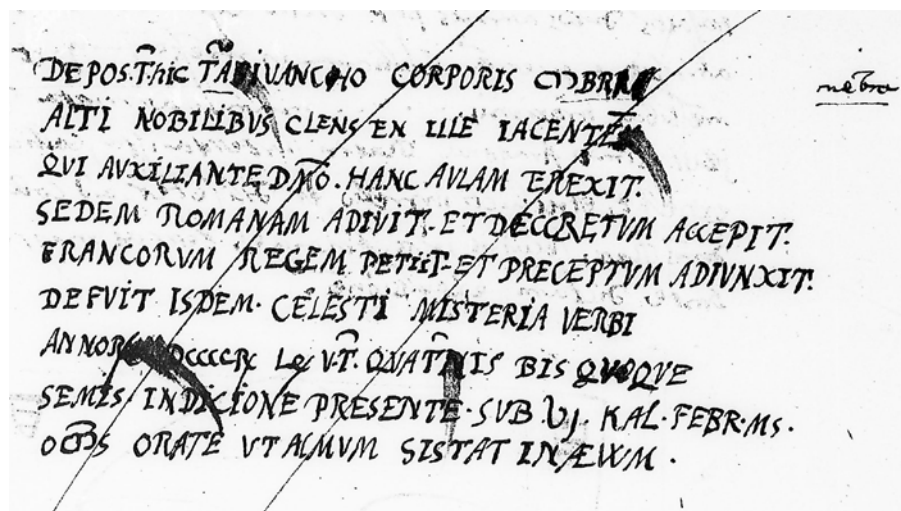 DEPOS. hic CORPORIS nēbra
ALTI NOBILIBVS CLENS EN ILLE IACENTE
QVI AVXILIANTE DÑO. HANC AVLAM EREXIT.
SEDEM ROMANAM ADIVIT. ET DECCRETVM ACCEPIT.
FRANCORVM REGEM PETIIT. ET PRECEPTVM ADIVNXIT.
DEFVIT ISDEM. CELESTI MISTERIA VERBI
BIS QVOQVE
SEMIS INDICIONE PRESENTE. SVB VJ. KAL. FEBR. MS.
ORATE VT ALMVM SISTAT IN ÆVVM.